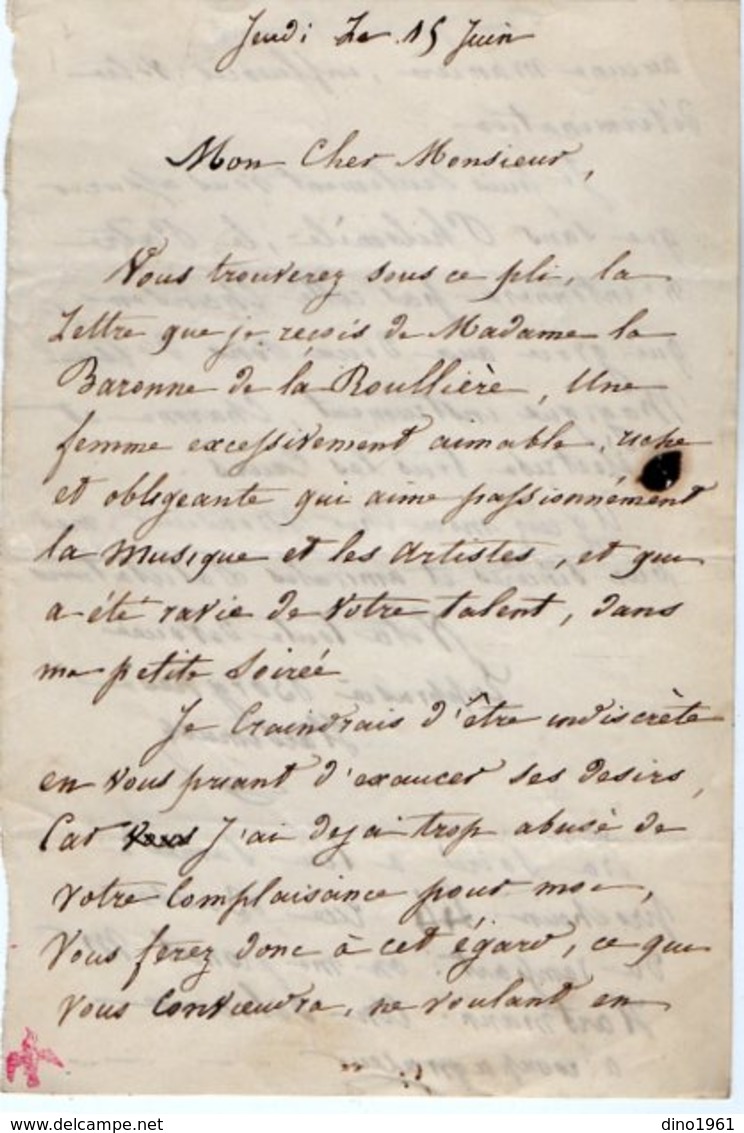 Jeudi Le 15 Juin
Mon Cher Monsieur,
Vous trouverez sous ce pli, la
Lettre que je reçois de Madame la
Baronne de la Roullière, Une
femme excessivement aimable, riche
et obligeante qui aime passionnément
la Musique et les Artistes, et qui
a été ravie de Votre talent, dans
ma petite Soirée
Je Craindrais d'être indiscrète
en Vous priant d'exaucer ses desirs,
Car Vous J'ai dejai trop abusé de
Votre Complaisance pour moi,
Vous ferez donc à cet égard, ce qui
Vous Conviendra, ne voulant en
dino1961